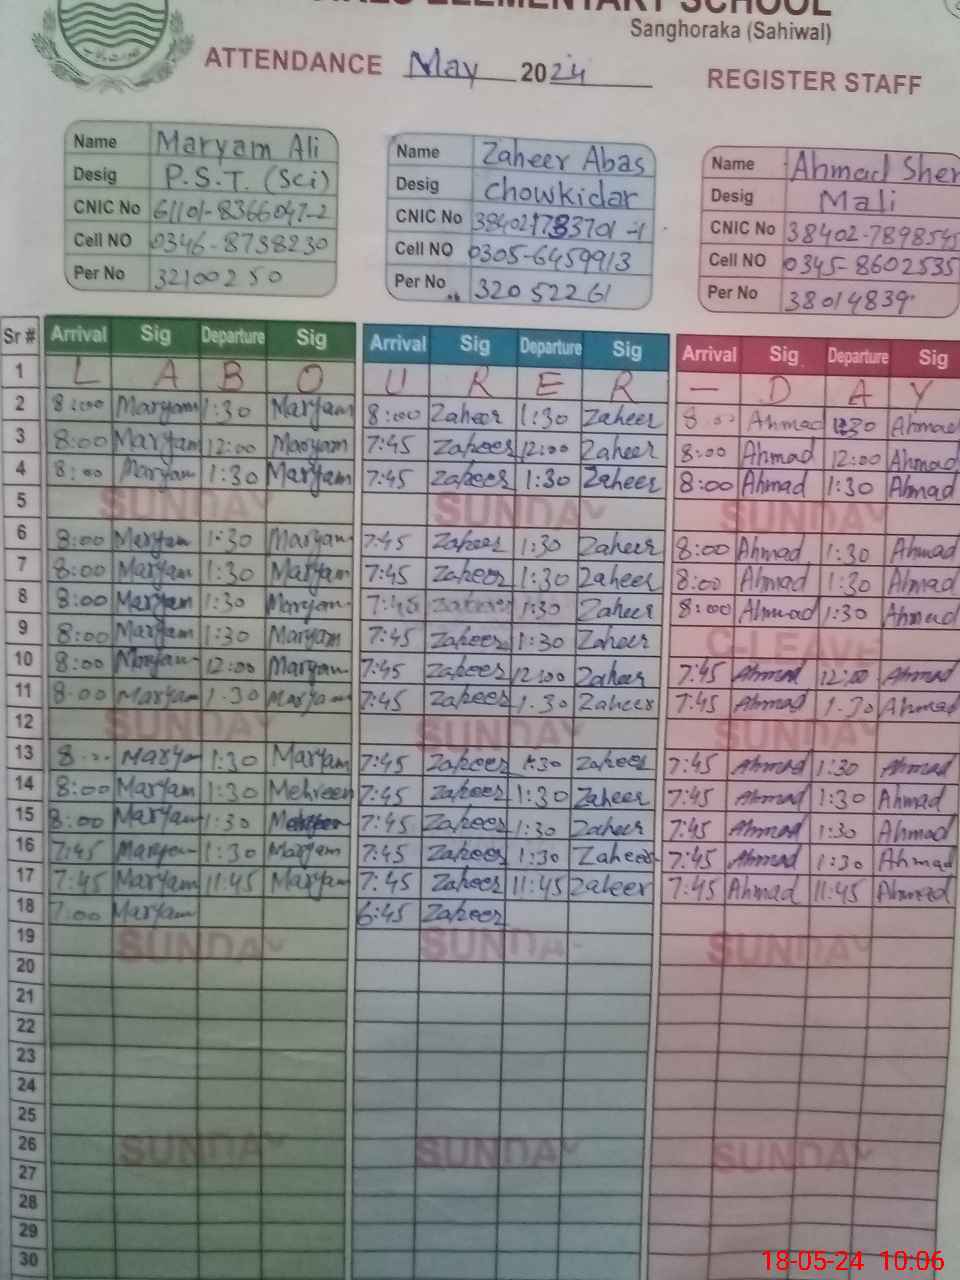 ELEMENTARY SCHOOL
Sanghoraka (Sahiwal)
ATTENDANCE May 2024 REGISTER STAFF
Name Maryam Ali Name Zaheer Abas Name Ahmad Sher
Desig P.S.T. (Sci) Desig Chowkidar Desig Mali
CNIC No 61101-8366047-2 CNIC No 38402-1783701-1 CNIC No 38402-789854
Cell NO 0346-8738230 Cell NO 0305-6459913 Cell NO 0345-8602535
Per No 32100250 Per No 32052261 Per No 38014839
Sr # Arrival Sig Departure Sig Arrival Sig Departure Sig Arrival Sig Departure Sig
1 L A B O U R E R - D A Y
2 8:00 Maryam 1:30 Maryam 8:00 Zaheer 1:30 Zaheer 8:00 Ahmad 1:30 Ahmad
3 8:00 Maryam 12:00 Maryam 7:45 Zaheer 12:00 Zaheer 8:00 Ahmad 12:00 Ahmad
4 8:00 Maryam 1:30 Maryam 7:45 Zaheer 1:30 Zaheer 8:00 Ahmad 1:30 Ahmad
5 SUNDAY SUNDAY SUNDAY
6 8:00 Maryam 1:30 Maryam 7:45 Zaheer 1:30 Zaheer 8:00 Ahmad 1:30 Ahmad
7 8:00 Maryam 1:30 Maryam 7:45 Zaheer 1:30 Zaheer 8:00 Ahmad 1:30 Ahmad
8 8:00 Maryam 1:30 Maryam 7:45 Zaheer 1:30 Zaheer 8:00 Ahmad 1:30 Ahmad
9 8:00 Maryam 1:30 Maryam 7:45 Zaheer 1:30 Zaheer C-LEAVE
10 8:00 Maryam 12:00 Maryam 7:45 Zaheer 12:00 Zaheer 7:45 Ahmad 12:00 Ahmad
11 8:00 Maryam 1:30 Maryam 7:45 Zaheer 1:30 Zaheer 7:45 Ahmad 1:30 Ahmad
12 SUNDAY SUNDAY SUNDAY
13 8:00 Maryam 1:30 Maryam 7:45 Zaheer 1:30 Zaheer 7:45 Ahmad 1:30 Ahmad
14 8:00 Maryam 1:30 Mehreen 7:45 Zaheer 1:30 Zaheer 7:45 Ahmad 1:30 Ahmad
15 8:00 Maryam 1:30 7:45 Zaheer 1:30 Zaheer 7:45 Ahmad 1:30 Ahmad
16 7:45 Maryam 1:30 Maryam 7:45 Zaheer 1:30 Zaheer 7:45 Ahmad 1:30 Ahmad
17 7:45 Maryam 11:45 Maryam 7:45 Zaheer 11:45 Zaheer 7:45 Ahmad 11:45 Ahmad
18 7:00 Maryam 6:45 Zaheer
19 SUNDAY SUNDAY SUNDAY
20
21
22
23
24
25
26 SUNDAY SUNDAY SUNDAY
27
28
29
30
18-05-24 10:06